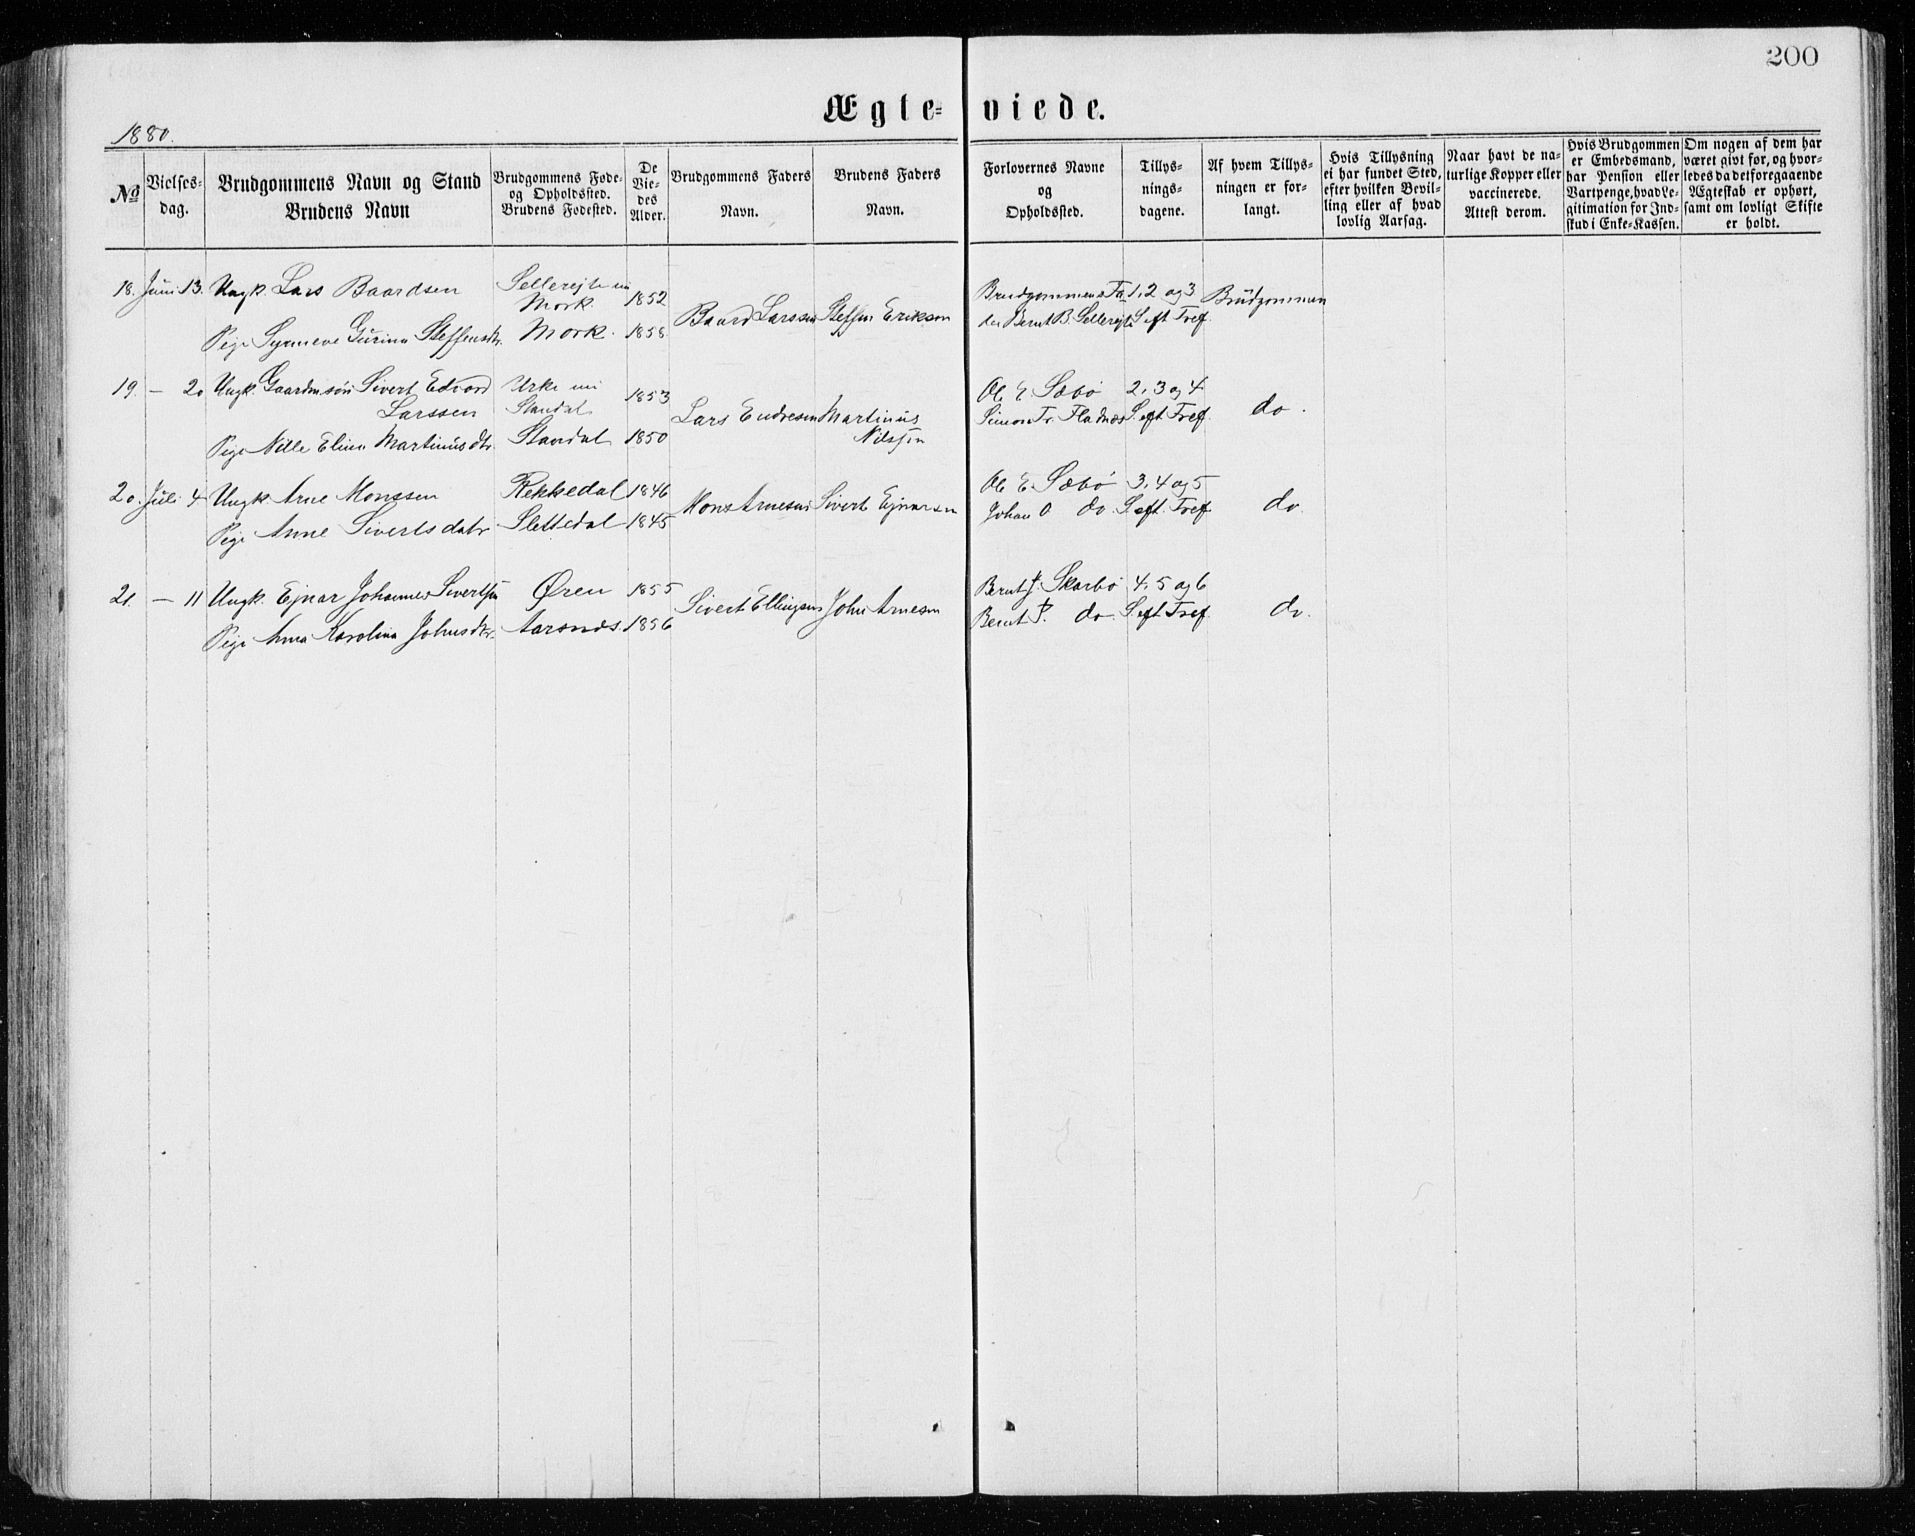 200
Ægte= viede.
1880.
No
Vielses-
dag.
Brudgommens Navn og Stand
Brudens Navn
Brudgommens Føde-
og Opholdssted.
Brudens Fødested.
De
Vie-
des
Alder.
Brudgommens Faders
Navn.
Brudens Faders
Navn.
Forlovernes Navne
og
Opholdssted.
Tillys-
nings-
dagene.
Af hvem Tillys-
ningen er for-
langt.
Hvis Tillysning
ei har fundet Sted,
efter hvilken Bevil-
ling eller af hvad
lovlig Aarsag.
Naar havt de na-
turlige Kopper eller
vaccinerede.
Attest derom.
Hvis Brudgommen
er Embedsmand,
har Pension eller
Vartpenge, hvad Le-
gitimation for Ind-
skud i Enke-Kassen.
Om nogen af dem har
været givt før, og hvor-
ledes da det foregaaende
Ægteskab er ophørt,
samt om lovligt Skifte
er holdt.
18. Juni 13. Ungk. Lars Baardsen
Pige Synneve Gurina Steffensdtr.
Sellerejte nu
Mork.
Mork.
1852
1858
Baard Larssen
Steffen Erikson
Brudgommens Fa
der Bernt B. Sellerejte
1, 2 og 3
S. eft Tref.
Brudgommen
19. — 20 Ungk. Gaardmsøn Sivert Edvard
Larssen
Pige Nille Elina Martinusdtr.
Urke nu
Standal
Standal
1853
1850
Lars Endresen
Martinus
Nilssen
Ole E. Sæbø
Simon Fr. Fladnæs
2, 3 og 4
S. eft. Tref.
do.
20. Juli 4 Ungk. Arne Monssen
Pige Anne Sivertsdatr
Rekkedal
Slettedal
1846
1845
Mons Arnesen
Sivert Ejnarsen
Ole E. Sæbø
Johan O. do.
3, 4 og 5
S. eft. Tref.
do.
21. — 11 Ungk. Ejnar Johannes Sivertsen
Pige Anna Karolina Johnsdtr.
Øren
Aarsnes.
1855
1856
Sivert Ellingsen
John Arnesen
Bernt J. Skarbø
Bernt P. do.
4, 5 og 6
S. eft Tref.
do.